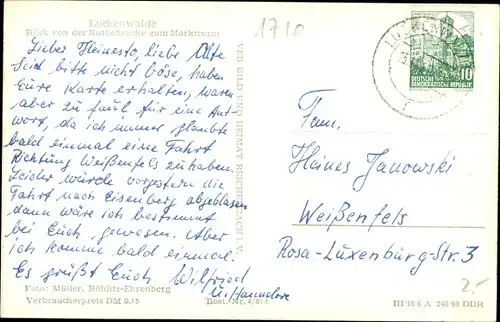 Luckenwalde
Blick von der Nuthebrücke zum Marktturm
1710
Lieber Heinesto, liebe Ute
Seid bitte nicht böse, haben
Eure Karte erhalten, waren
aber zu faul für eine Ant-
wort, da ich immer glaubte
bald einmal eine Fahrt
Richtung Weißenfels zu haben.
Leider wurde vorgestern die
Fahrt nach Eisenberg abgeblasen
dann wäre ich bestimmt
bei Euch gewesen. Aber
ich komme bald einmal.
Es grüßt Euch Wilfried
u. Hannelore
Foto: Müller, Böhlitz-Ehrenberg
Verbraucherpreis DM 0.15
Best.-Nr.
VEB BILD UND HEIMAT REICHENBACH I. V.
LUCKENW
DEUTSCHE
DEMOKRATISCHE REPUBLIK
10
Fam.
Heines Janowski
Weißenfels
Rosa-Luxenburg-Str. 3
2,-
III/18/6 A 246/60 DDR